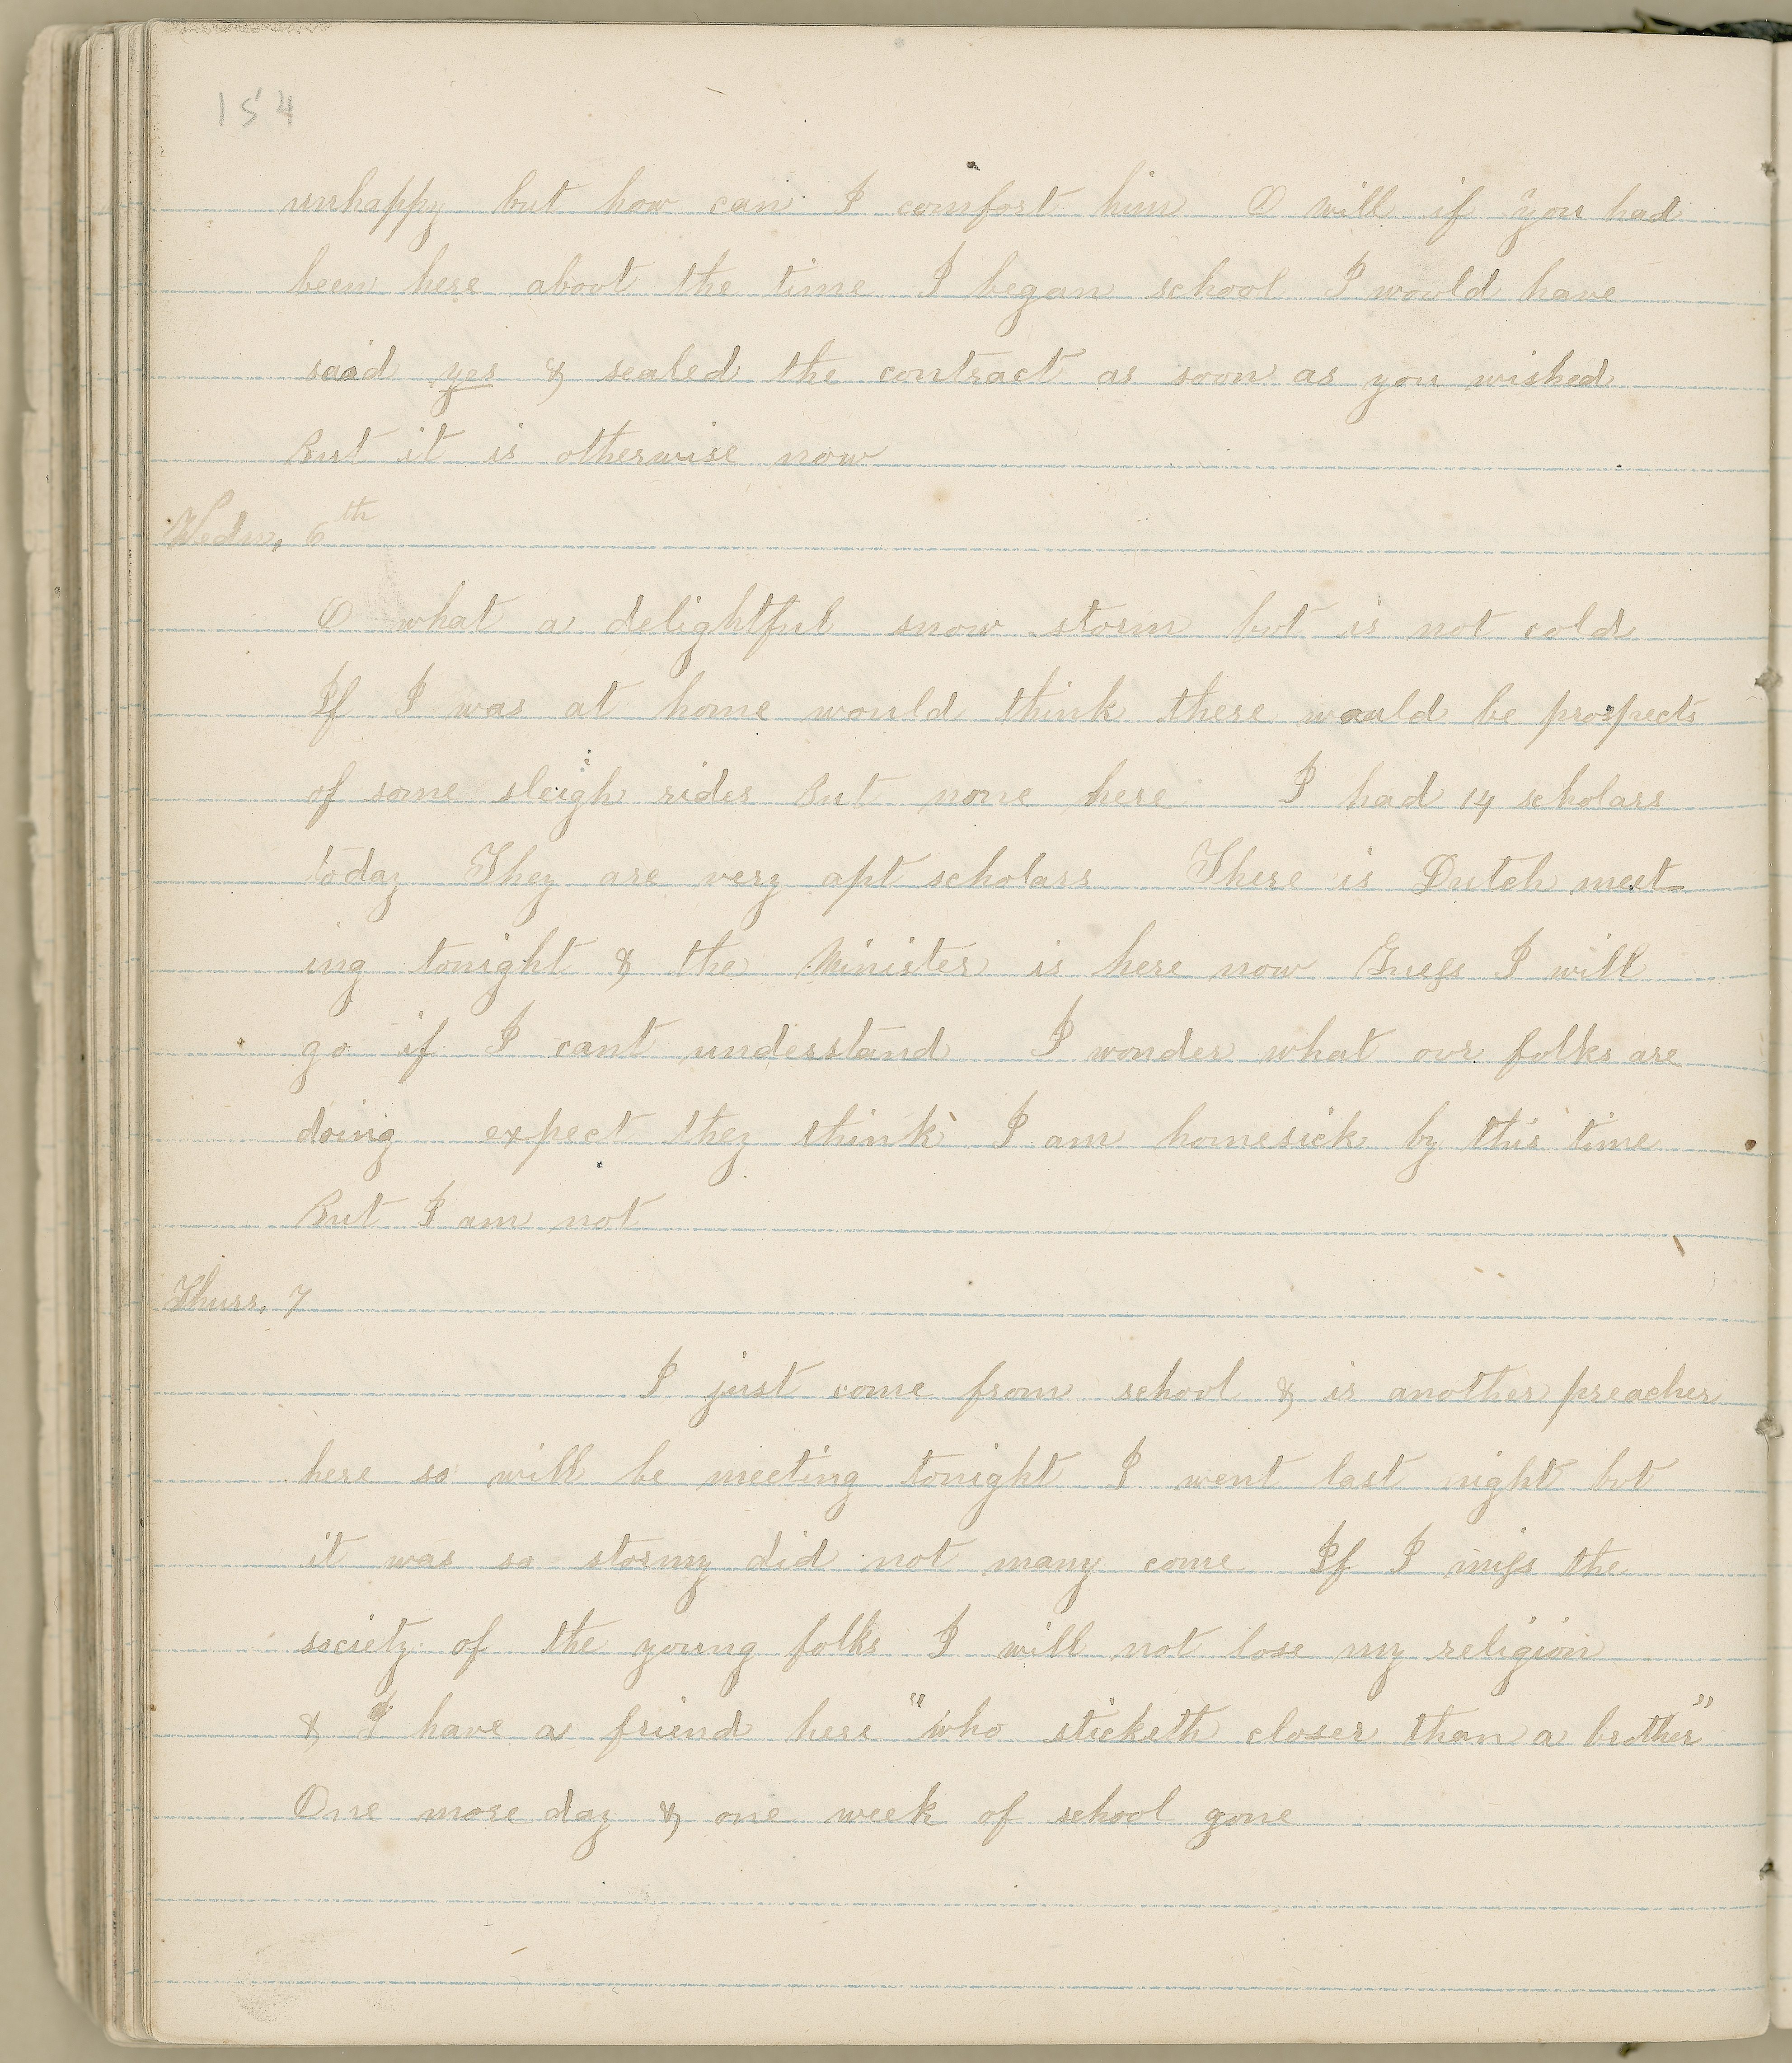 154
unhappy but how can I comfort him O will if you had
been here about the time I began school I would have
said yes & sealed the contract as soon as you wished
But it is otherwise now
Wedn, 6th
O what a delightful snow storm but is not cold
If I was at home would think there would be prospects
of some sleigh rides But none here I had 14 scholars
today They are very apt scholars There is Dutch meet-
ing tonight & the Minister is here now Guess I will
go if I cant understand I wonder what our folks are
doing expect they think I am homesick by this time
But I am not
Thurs, 7
I just come from school & is another preacher
here so will be meeting tonight I went last night but
it was so stormy did not many come If I miss the
society of the young folks I will not lose my religion
& I have a friend here "who sticketh closer than a brother"
One more day & one week of school gone